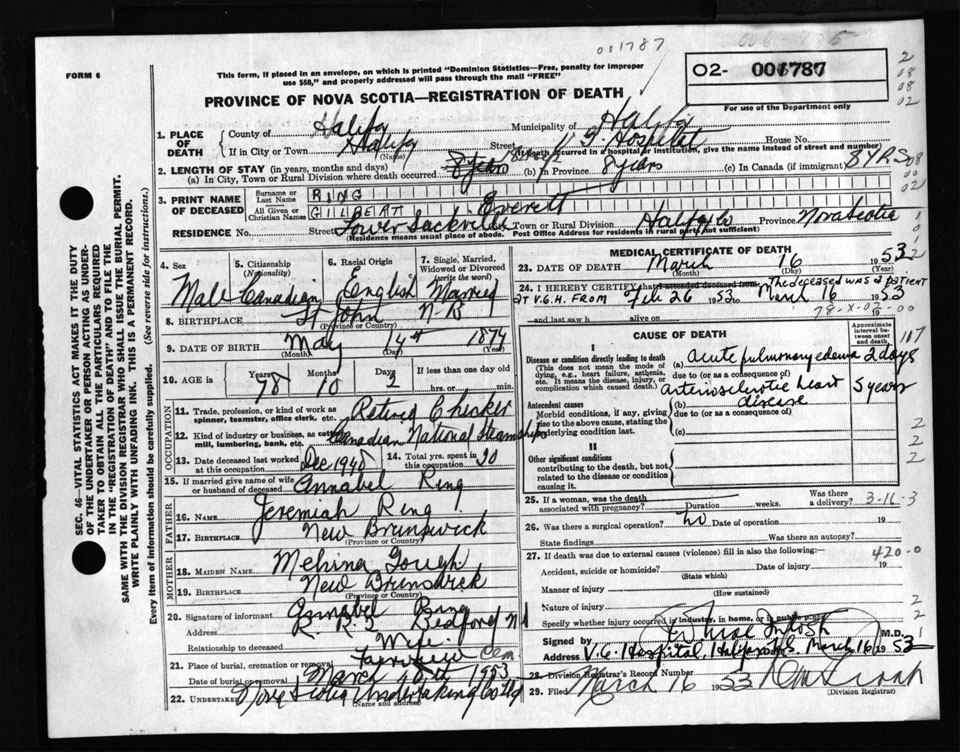 001787
FORM 6
This form, if placed in an envelope, on which is printed "Dominion Statistics—Free, penalty for improper
use $50," and properly addressed will pass through the mail "FREE"
O2- 001787
For use of the Department only
2
08
08
02
PROVINCE OF NOVA SCOTIA—REGISTRATION OF DEATH
1. PLACE OF DEATH
County of Halifax Municipality of Halifax
If in City or Town Halifax Street V. G. Hospital House No.
(Name) (If death occurred in a hospital or institution, give the name instead of street and number)
2. LENGTH OF STAY (in years, months and days)
(a) In City, Town or Rural Division where death occurred (b) In Province 8 years (c) In Canada (if immigrant) 8 YRS
3. PRINT NAME OF DECEASED
Surname or Last Name RING
All Given or Christian Names GILBERT Everett
RESIDENCE No. Street Lower Sackville Town or Rural Division Halifax Co Province Nova Scotia
(Residence means usual place of abode. Post Office Address for residents in rural parts not sufficient)
4. Sex Male
5. Citizenship (Nationality) Canadian
6. Racial Origin English
7. Single, Married, Widowed or Divorced (write the word) Married
8. BIRTHPLACE St John N-B
(Province or Country)
9. DATE OF BIRTH May 14th 1874
(Month) (Day) (Year)
10. AGE in Years 78 Months 10 Days 2 If less than one day
hrs. or min.
OCCUPATION
11. Trade, profession, or kind of work as spinner, teamster, office clerk, etc. Retired Checker
12. Kind of industry or business, as cotton mill, lumbering, bank, etc. Canadian National Steamships
13. Date deceased last worked at this occupation Dec 1940
14. Total yrs. spent in this occupation 20
15. If married give name of wife or husband of deceased Annabel Ring
FATHER
16. Name Jeremiah Ring
17. BIRTHPLACE New Brunswick
(Province or Country)
MOTHER
18. MAIDEN NAME Gough
19. BIRTHPLACE New Brunswick
(Province or Country)
20. Signature of informant Annabel Ring
Address R. R. Bedford N S
Relationship to deceased Wife
21. Place of burial, cremation or removal Fairview Cem
Date of burial or removal March 1953
22. UNDERTAKER Nova Scotia Undertaking Co Ltd
(Name and address)
MEDICAL CERTIFICATE OF DEATH
23. DATE OF DEATH March 16 1953
(Month) (Day) (Year)
24. I HEREBY CERTIFY that I attended deceased from The deceased was a patient
at V.G.H. FROM Feb 26 1953 to March 16 1953
and last saw h alive on 19
CAUSE OF DEATH
Approximate interval between onset and death
I
Disease or condition directly leading to death
(This does not mean the mode of dying, e.g., heart failure, asthenia, etc. It means the disease, injury, or complication which caused death.)
(a) acute pulmonary edema 2 days
due to (or as a consequence of)
Antecedent causes
Morbid conditions, if any, giving rise to the above cause, stating the underlying condition last.
(b) arteriosclerotic heart disease 5 years
due to (or as a consequence of)
(c)
II
Other significant conditions
contributing to the death, but not related to the disease or condition causing it
25. If a woman, was the death associated with pregnancy? Duration weeks. Was there a delivery? 3-16-3
26. Was there a surgical operation? no Date of operation 19
State findings Was there an autopsy?
27. If death was due to external causes (violence) fill in also the following:— 420-0
Accident, suicide or homicide? Date of injury 19
(State which)
Manner of injury
(How sustained)
Nature of injury
Specify whether injury occurred in industry, in home, or in public place
Signed by MacIntosh M.D.
Address V.G. Hospital, Halifax N.S. March 16 1953
28. Division Registrar's Record Number
29. Filed March 16 1953
(Division Registrar)
SEC. 46—VITAL STATISTICS ACT MAKES IT THE DUTY
OF THE UNDERTAKER OR PERSON ACTING AS UNDER-
TAKER TO OBTAIN ALL THE PARTICULARS REQUIRED
IN THE "REGISTRATION OF DEATH" AND TO FILE THE
SAME WITH THE DIVISION REGISTRAR WHO SHALL ISSUE THE BURIAL PERMIT.
WRITE PLAINLY WITH UNFADING INK. THIS IS A PERMANENT RECORD.
Every item of information should be carefully supplied. (See reverse side for instructions.)